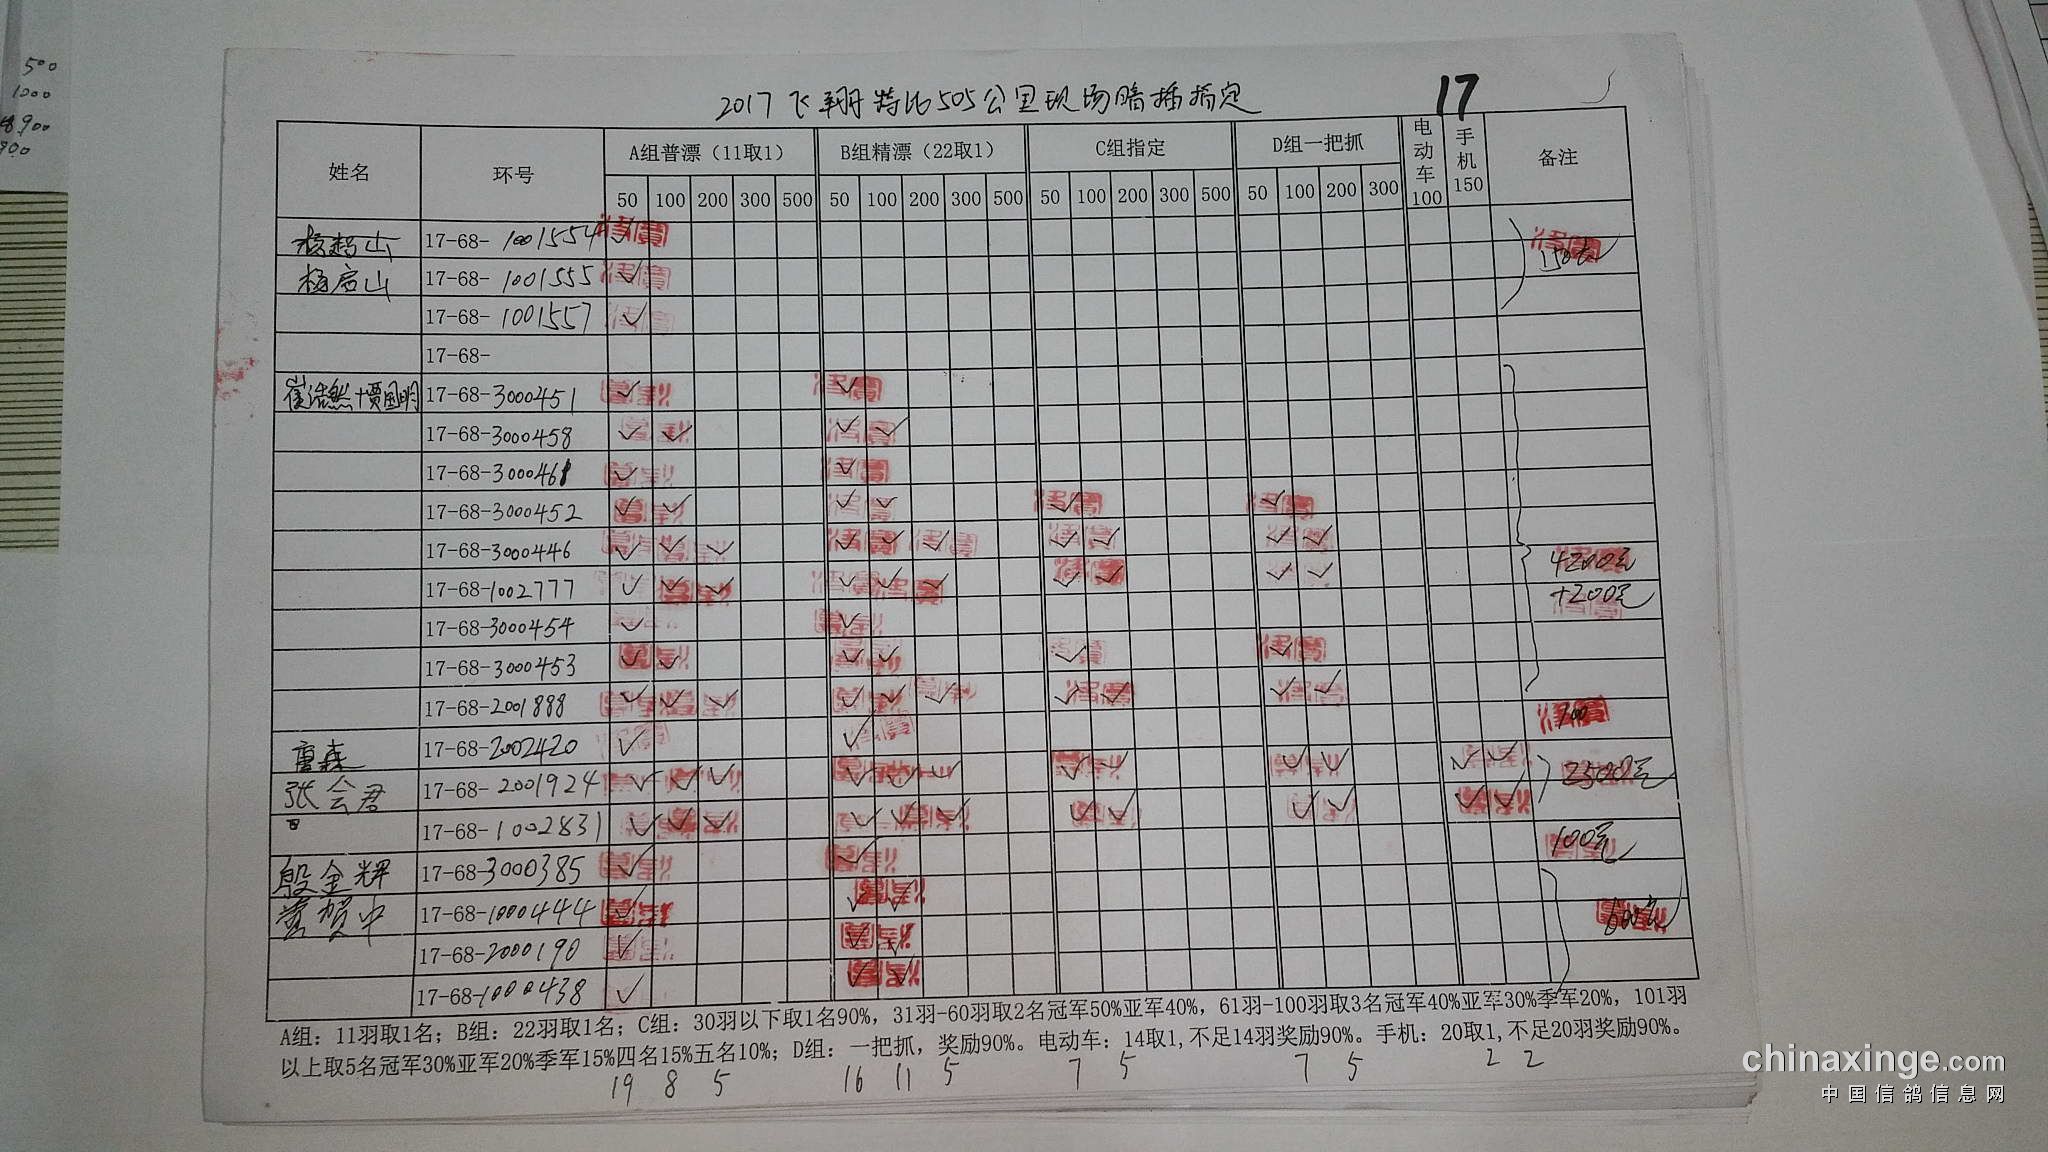 500
1000
900
2017飞翔特比505公里现场暗插指定
17
姓名 环号 A组普漂（11取1） B组精漂（22取1） C组指定 D组一把抓 电动车100 手机150 备注
50 100 200 300 500 50 100 200 300 500 50 100 200 300 500 50 100 200 300
17-68-1001554 ✓
杨启山 17-68-1001555 ✓ 150元
17-68-1001557 ✓
17-68-
崔浩然+贾国明 17-68-3000451 ✓ ✓
17-68-3000458 ✓ ✓ ✓ ✓
17-68-3000461 ✓ ✓
17-68-3000452 ✓ ✓ ✓ ✓ ✓ ✓
17-68-3000446 ✓ ✓ ✓ ✓ ✓ ✓ ✓ ✓ ✓ ✓ 4200元
17-68-1002777 ✓ ✓ ✓ ✓ ✓ ✓ ✓ ✓ ✓ ✓ +200元
17-68-3000454 ✓ ✓
17-68-3000453 ✓ ✓ ✓ ✓ ✓ ✓
17-68-2001888 ✓ ✓ ✓ ✓ ✓ ✓ ✓ ✓ ✓ ✓
唐森 17-68-2002420 ✓ ✓ 100
张会君 17-68-2001924 ✓ ✓ ✓ ✓ ✓ ✓ ✓ ✓ ✓ ✓ ✓ ✓ 2500元
17-68-1002831 ✓ ✓ ✓ ✓ ✓ ✓ ✓ ✓ ✓ ✓ ✓ ✓
殷金辉 17-68-3000385 ✓ ✓ 100元
贺中 17-68-1000444 ✓ ✓ ✓ 600元
17-68-2000190 ✓ ✓ ✓
17-68-1000438 ✓ ✓ ✓
A组：11羽取1名；B组：22羽取1名；C组：30羽以下取1名90%，31羽-60羽取2名冠军50%亚军40%，61羽-100羽取3名冠军40%亚军30%季军20%，101羽
以上取5名冠军30%亚军20%季军15%四名15%五名10%；D组：一把抓，奖励90%。电动车：14取1,不足14羽奖励90%。手机：20取1,不足20羽奖励90%。
19 8 5 16 11 5 7 5 7 5 2 2
chinaxinge.com
中国信鸽信息网